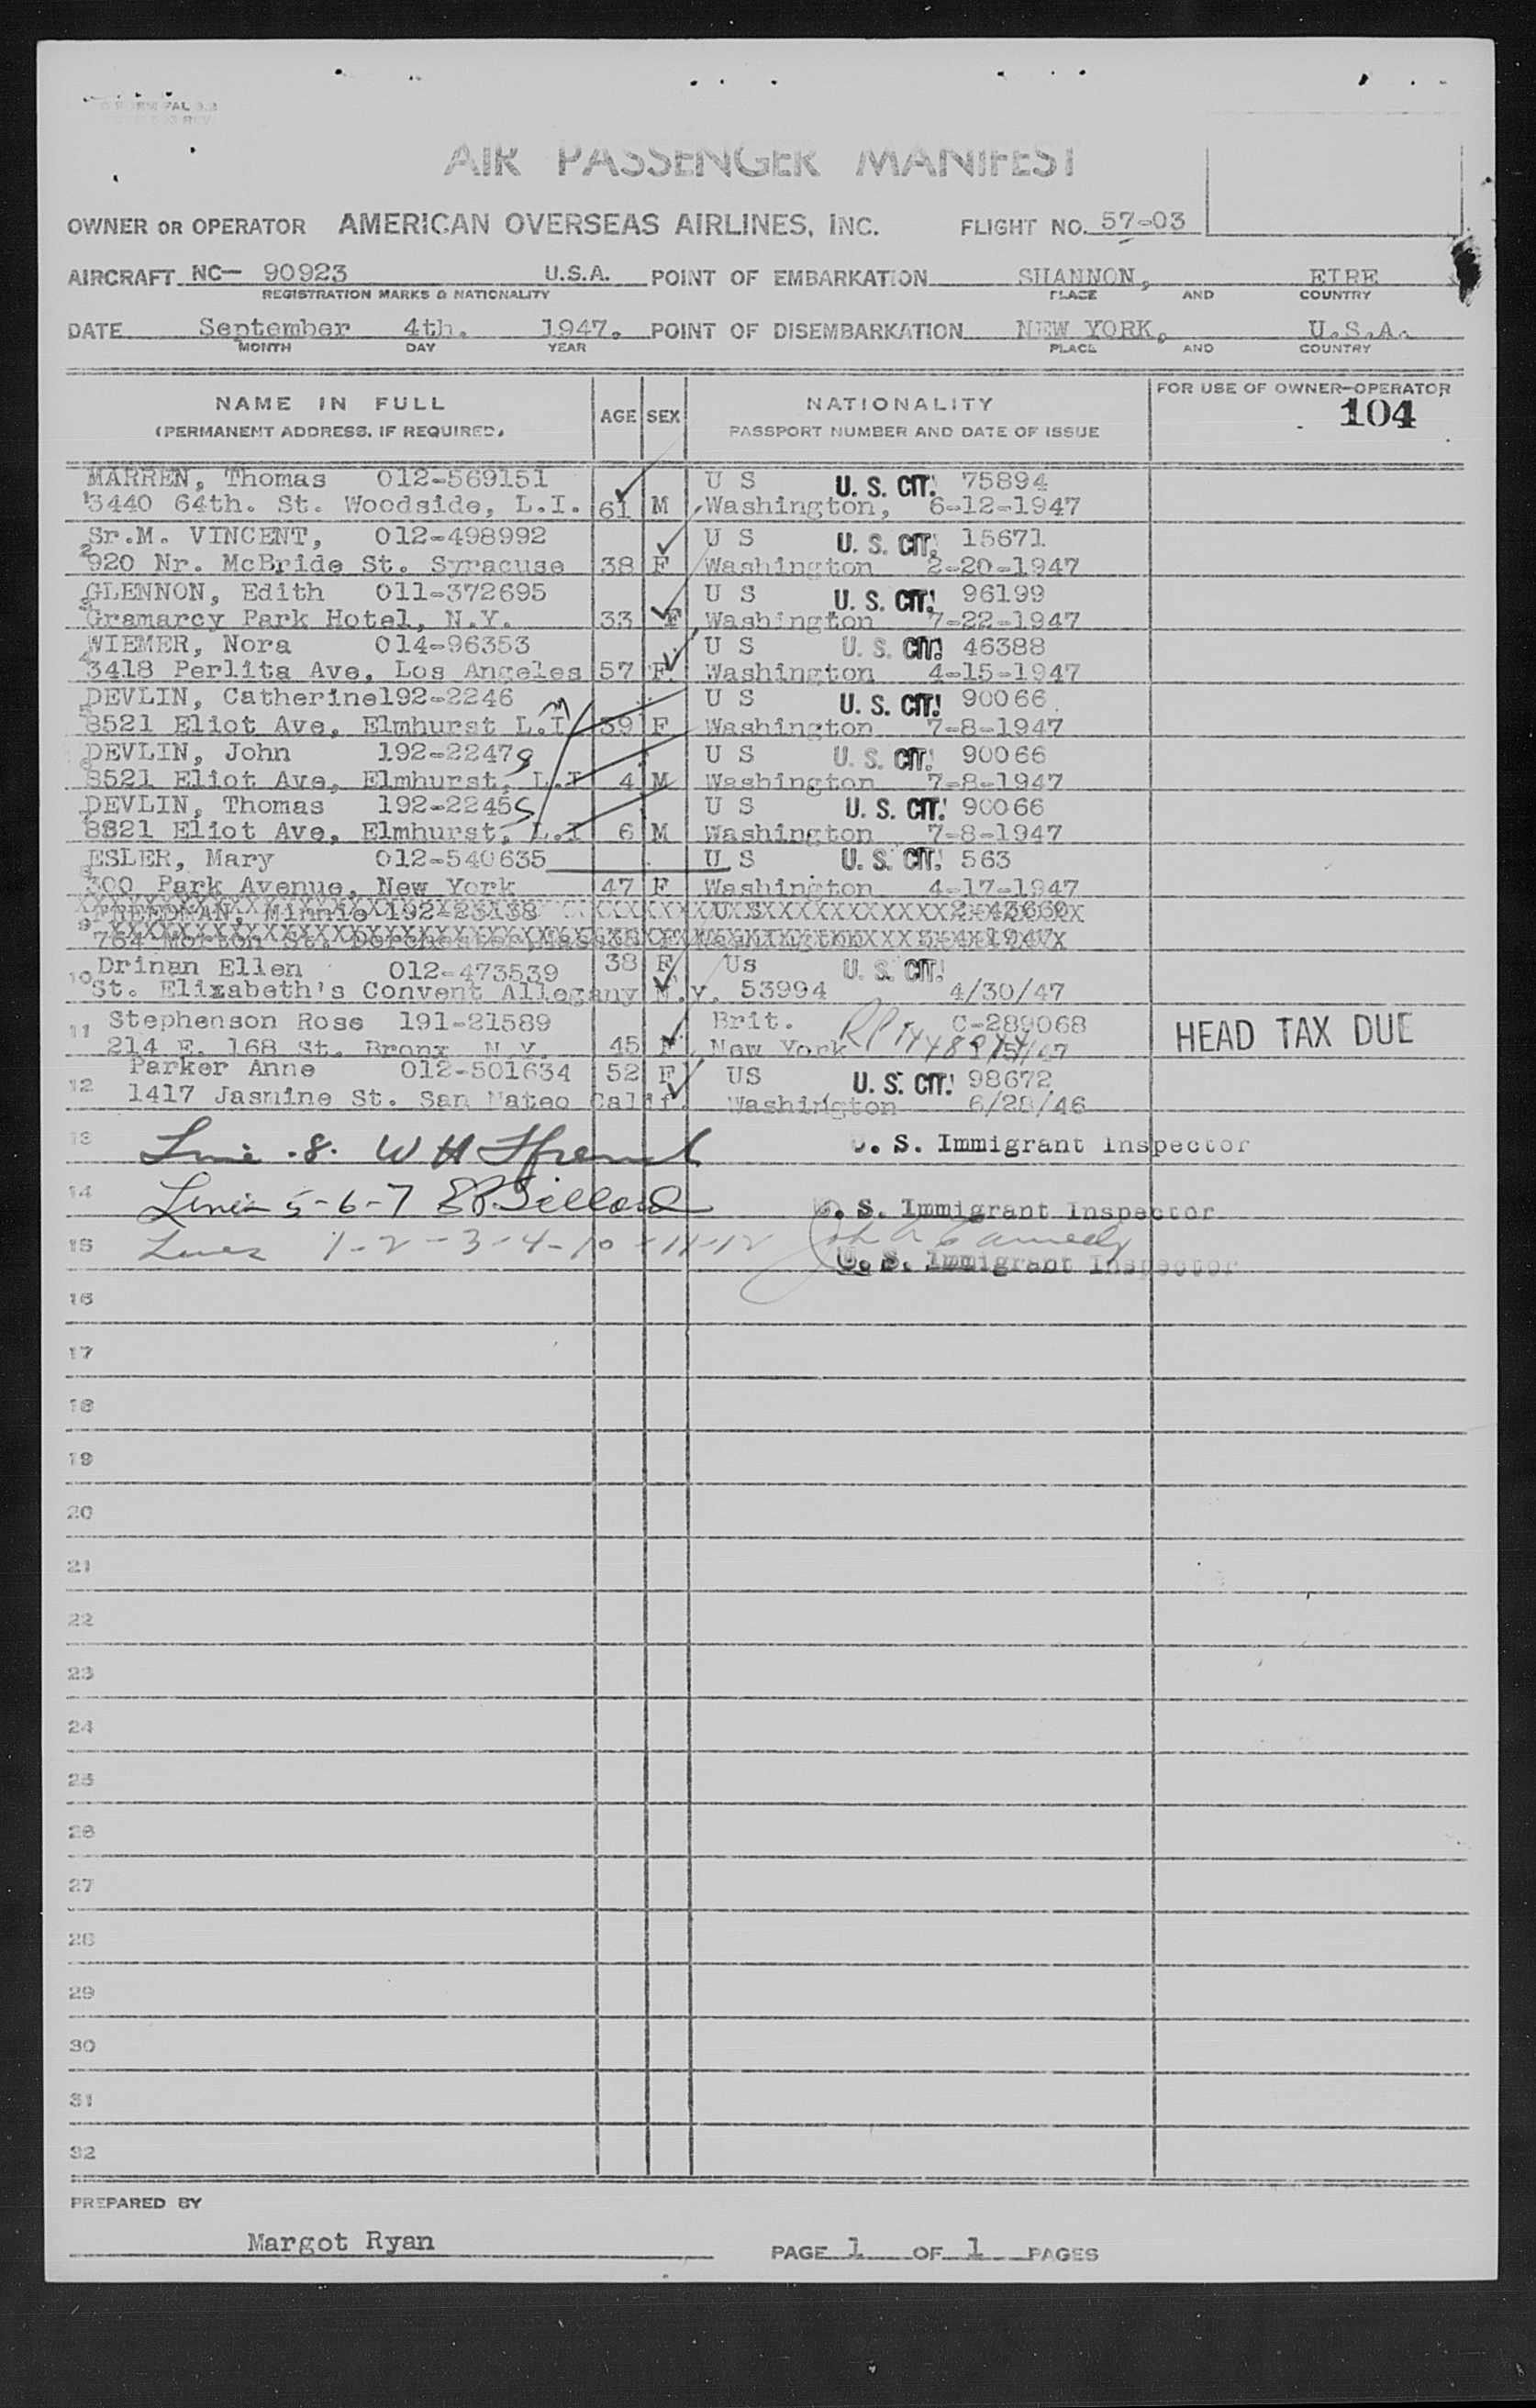 AIR PASSENGER MANIFEST
OWNER OR OPERATOR AMERICAN OVERSEAS AIRLINES, INC. FLIGHT NO. 57-03
AIRCRAFT NC- 90923 U.S.A. POINT OF EMBARKATION SHANNON, EIRE
REGISTRATION MARKS & NATIONALITY PLACE AND COUNTRY
DATE September 4th. 1947. POINT OF DISEMBARKATION NEW YORK, U.S.A.
MONTH DAY YEAR PLACE AND COUNTRY
NAME IN FULL AGE SEX NATIONALITY FOR USE OF OWNER-OPERATOR
(PERMANENT ADDRESS, IF REQUIRED) PASSPORT NUMBER AND DATE OF ISSUE 104
MARREN, Thomas 012-569151 U S U. S. CIT. 75894
1 3440 64th. St. Woodside, L.I. 61 M Washington, 6-12-1947
Sr.M. VINCENT, 012-498992 U S U. S. CIT. 15671
2 920 Nr. McBride St. Syracuse 38 F Washington 2-20-1947
GLENNON, Edith 011-372695 U S U. S. CIT. 96199
3 Gramarcy Park Hotel, N.Y. 33 F Washington 7-22-1947
WIEMER, Nora 014-96353 U S U. S. CIT. 46388
4 3418 Perlita Ave, Los Angeles 57 F Washington 4-15-1947
DEVLIN, Catherine192-2246 U S U. S. CIT. 90066
5 8521 Eliot Ave, Elmhurst L.I M 39 F Washington 7-8-1947
DEVLIN, John 192-2247 S U S U. S. CIT. 90066
6 8521 Eliot Ave, Elmhurst, L.I 4 M Washington 7-8-1947
DEVLIN, Thomas 192-2245 S U S U. S. CIT. 90066
7 8821 Eliot Ave, Elmhurst, L.I 6 M Washington 7-8-1947
ESLER, Mary 012-540635 U S U. S. CIT. 563
8 300 Park Avenue, New York 47 F Washington 4-17-1947
FREEDMAN, Minnie 192-23138 U S
9 784 Morton St. Dorchester, Mass 38 F Washington
Drinan Ellen 012-473539 38 F Us U. S. CIT.
10 St. Elizabeth's Convent Allegany N.Y. 53994 4/30/47
11 Stephenson Rose 191-21589 Brit. RP C-289068 HEAD TAX DUE
214 E. 168 St. Bronx N.Y. 45 F New York
Parker Anne 012-501634 52 F US U. S. CIT. 98672
12 1417 Jasmine St. San Mateo Calif. Washington 6/28/46
13 Line .8. W H U. S. Immigrant Inspector
14 Lines 5-6-7 U. S. Immigrant Inspector
15 Lines 1-2-3-4-10-11-12 John
U. S. Immigrant Inspector
16
17
18
19
20
21
22
23
24
25
26
27
28
29
30
31
32
PREPARED BY
Margot Ryan PAGE 1 OF 1 PAGES